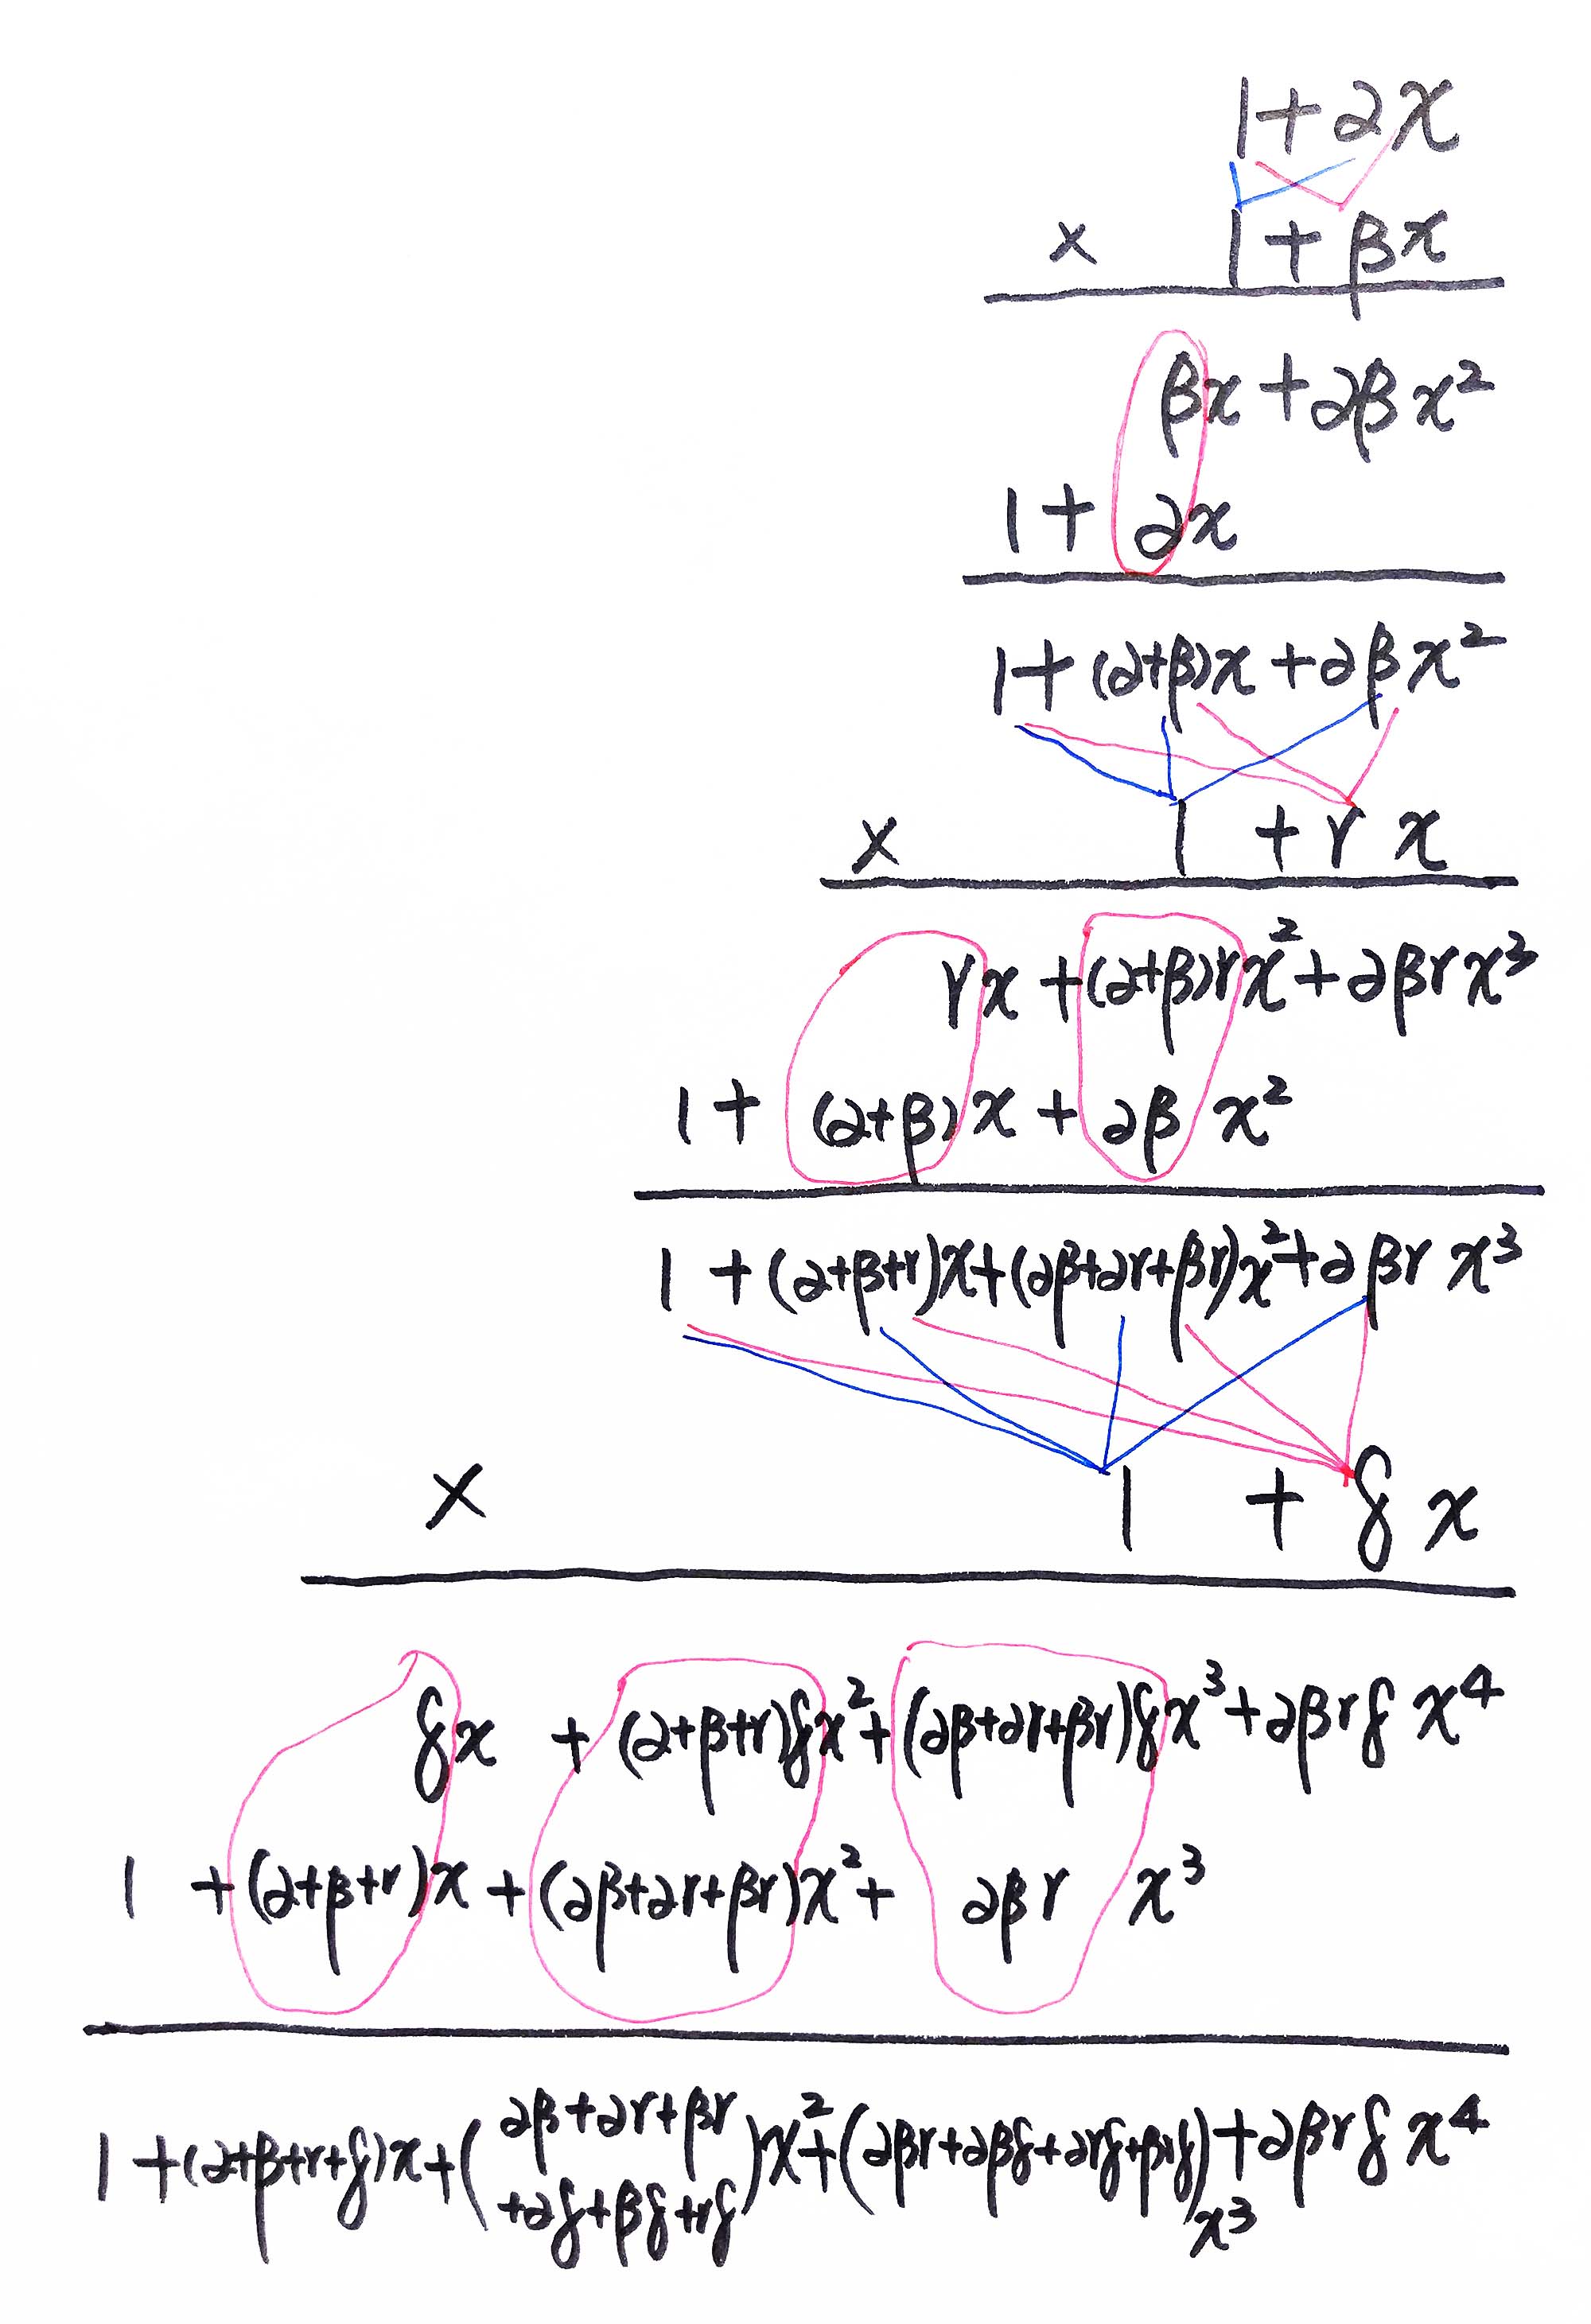 1+αx
× 1+βx
βx+αβx²
1+ αx
1+(α+β)x+αβx²
× 1 +γx
γx+(α+β)γx²+αβγx³
1+ (α+β)x+αβx²
1+(α+β+γ)x+(αβ+αγ+βγ)x²+αβγx³
× 1 +δx
δx +(α+β+γ)δx²+(αβ+αγ+βγ)δx³+αβγδx⁴
1 +(α+β+γ)x+(αβ+αγ+βγ)x²+ αβγ x³
1+(α+β+γ+δ)x+(αβ+αγ+βγ+αδ+βδ+γδ)x²+(αβγ+αβδ+αγδ+βγδ)x³+αβγδx⁴